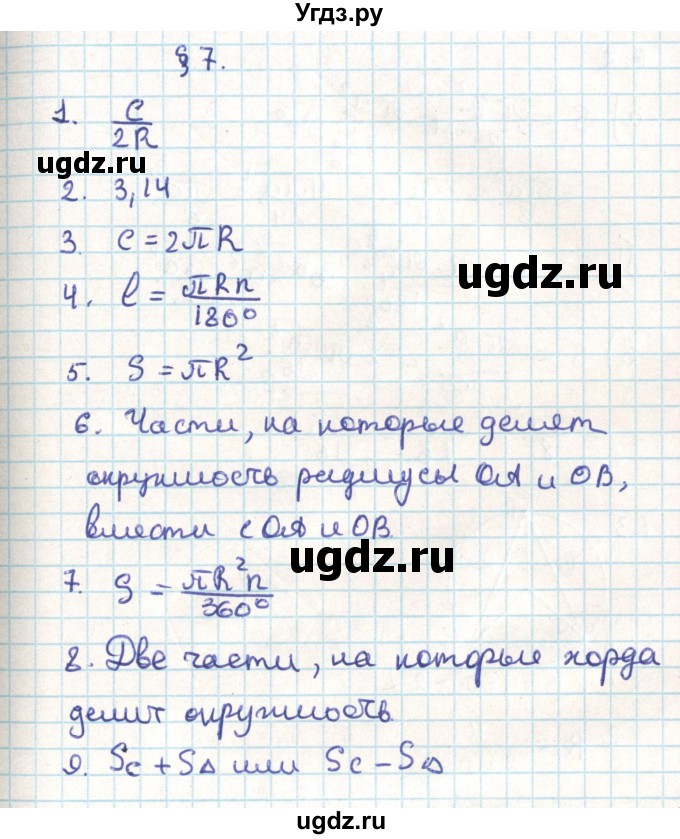 Угдз.ру
§ 7.
1. C/2R
ugdz.ru
2. 3,14
3. C = 2πR
ugdz.ru
4. l = πRn/180°
5. S = πR²
6. Части, на которые делят
окружность радиусы OA и OB,
вместе с OA и OB.
ugdz.ru
7. S = πR²n/360°
8. Две части, на которые хорда
делит окружность.
9. Sc + S∆ или Sc - S∆
ugdz.ru
ugdz.ru